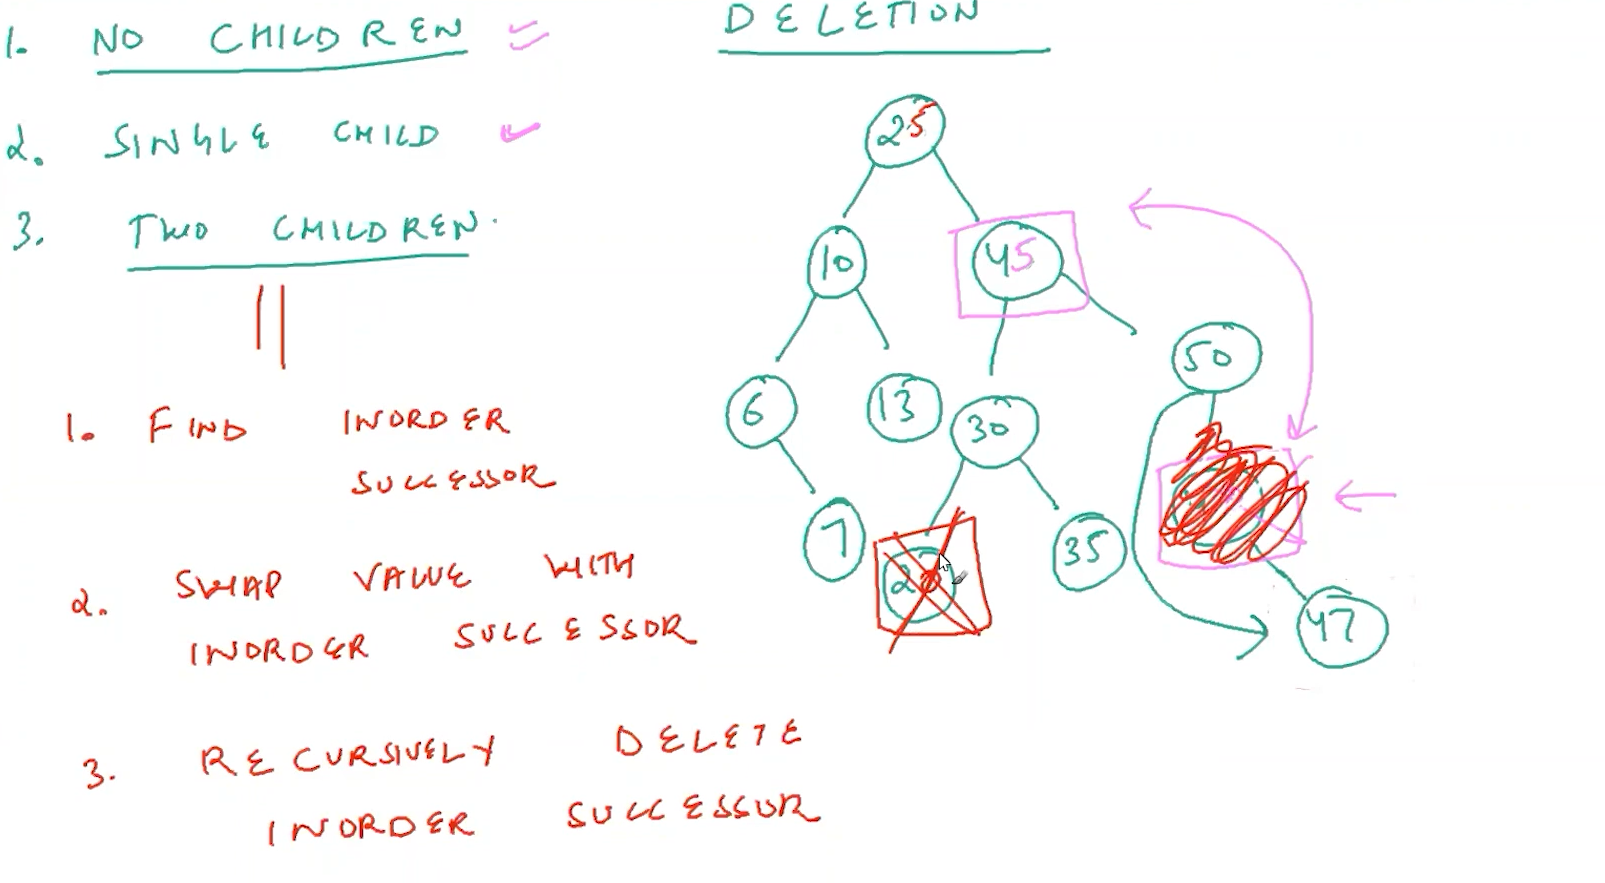 DELETION
1. NO CHILDREN
2. SINGLE CHILD
3. TWO CHILDREN.
1. FIND INORDER
SUCCESSOR
2. SWAP VALUE WITH
INORDER SUCCESSOR
3. RECURSIVELY DELETE
INORDER SUCCESSOR
25
10
45
50
6
13
30
7
35
47